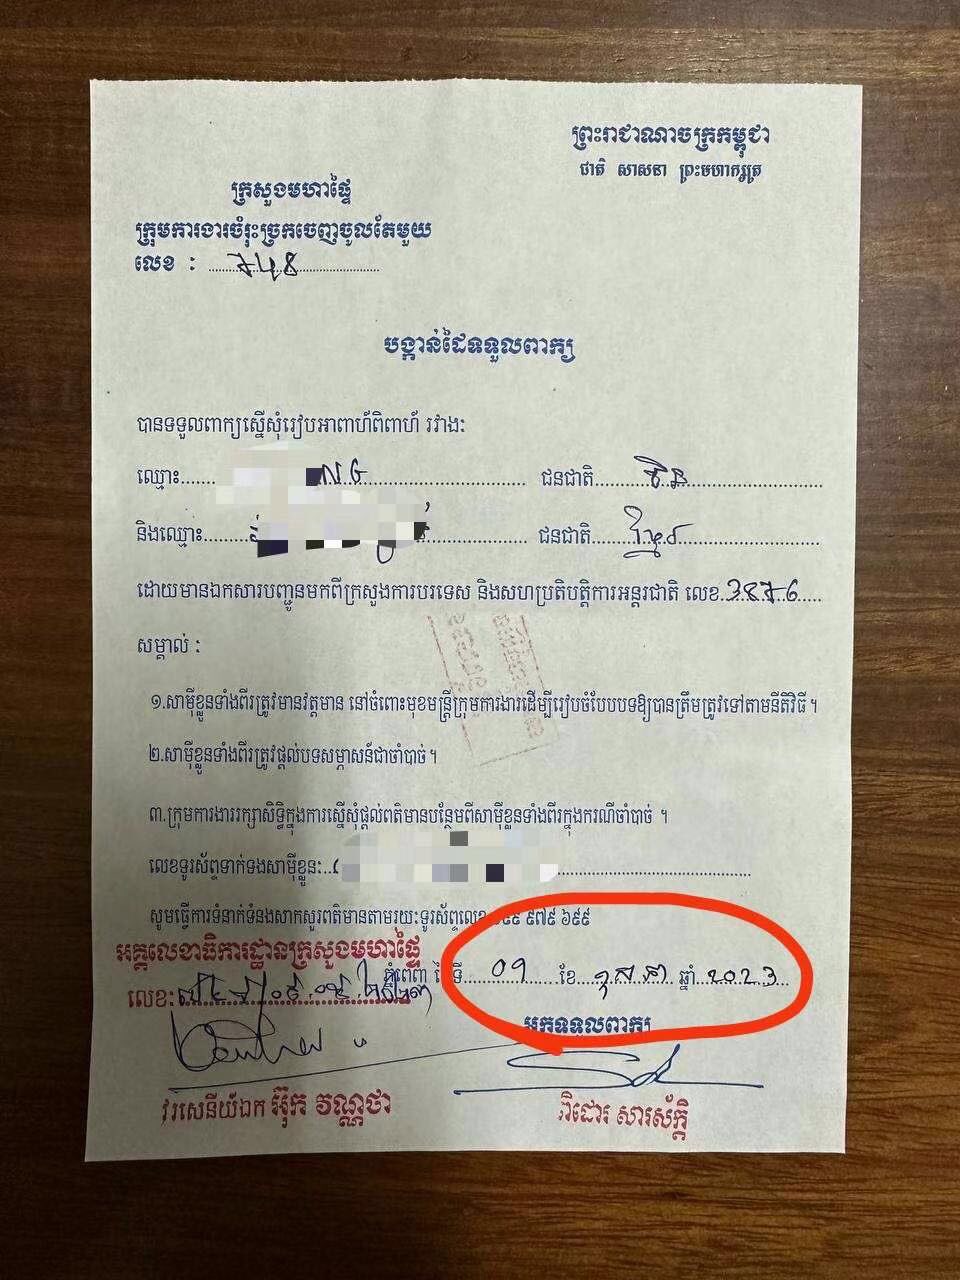 ព្រះរាជាណាចក្រកម្ពុជា
ជាតិ សាសនា ព្រះមហាក្សត្រ
ក្រសួងមហាផ្ទៃ
ក្រុមការងារចំរុះច្រកចេញចូលតែមួយ
លេខ :
បង្កាន់ដៃទទួលពាក្យ
បានទទួលពាក្យស្នើសុំរៀបអាពាហ៍ពិពាហ៍ រវាង:
ឈ្មោះ ជនជាតិ ចិន
និងឈ្មោះ ជនជាតិ ខ្មែរ
ដោយមានឯកសារបញ្ជូនមកពីក្រសួងការបរទេស និងសហប្រតិបត្តិការអន្តរជាតិ លេខ 3876
សម្គាល់ :
១.សាម៉ីខ្លួនទាំងពីរត្រូវមានវត្តមាន នៅចំពោះមុខមន្ត្រីក្រុមការងារដើម្បីរៀបចំបែបបទឱ្យបានត្រឹមត្រូវទៅតាមនីតិវិធី។
២.សាម៉ីខ្លួនទាំងពីរត្រូវផ្តល់បទសម្ភាសន៍ជាចាំបាច់។
៣.ក្រុមការងាររក្សាសិទ្ធិក្នុងការស្នើសុំផ្តល់ពត៌មានបន្ថែមពីសាម៉ីខ្លួនទាំងពីរក្នុងករណីចាំបាច់ ។
លេខទូរស័ព្ទទាក់ទងសាម៉ីខ្លួន:
សូមធ្វើការទំនាក់ទំនងសាកសួរពត៌មានតាមរយ:ទូរស័ព្ទលេខ ៩៧៩ ៦៩៩
អគ្គលេខាធិការដ្ឋានក្រសួងមហាផ្ទៃ
ភ្នំពេញ ថ្ងៃទី 01 ខែ ឧសភា ឆ្នាំ 2023
លេខ:
អ្នកទទួលពាក្យ
វរសេនីយ៍ឯក អ៊ុក វណ្ណថា
ពិដោរ សារស័ក្តិ